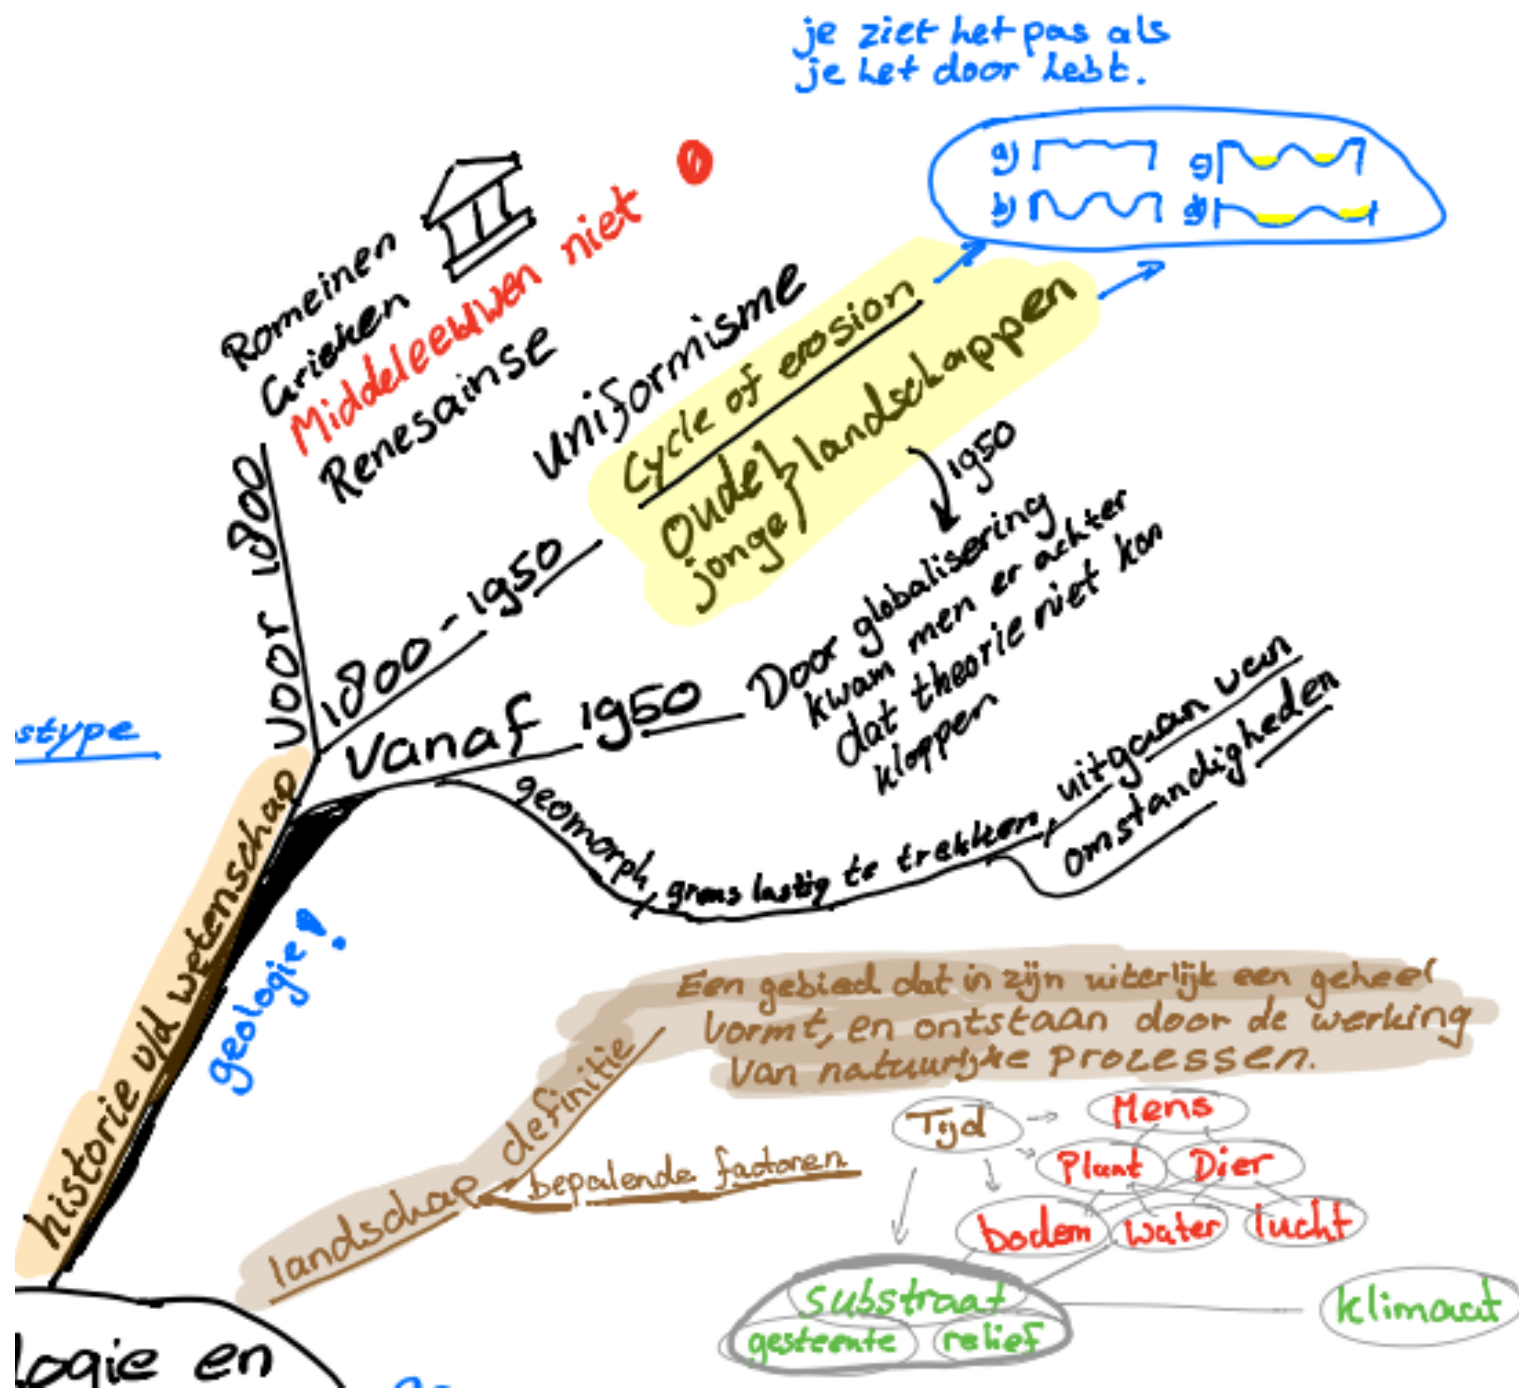 je ziet het pas als
je het door hebt.
a)
b)
c)
d)
Romeinen
Grieken
Middeleeuwen niet
Renesainse
voor 1800
uniformisme
Cycle of erosion
Oude
jonge
landschappen
1800-1950
1950
Door globalisering
kwam men er achter
dat theorie niet kon
kloppen
Vanaf 1950
geomorph, grens lastig te trekken, uitgaan van
omstandigheden
stype
historie v/d wetenschap
geologie!
Een gebied dat in zijn uiterlijk een geheel
vormt, en ontstaan door de werking
van natuurlijke processen.
landschap definitie
bepalende factoren
Tijd
Mens
Plant
Dier
bodem
water
lucht
substraat
klimaat
gesteente
relief
logie en